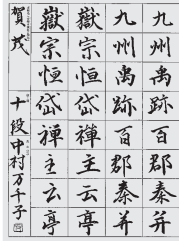 九州禹跡百郡秦并
九州禹跡百郡秦并
嶽宗恒岱禅主云亭
嶽宗恒岱禅主云亭
賀茂 十段 中村万千子